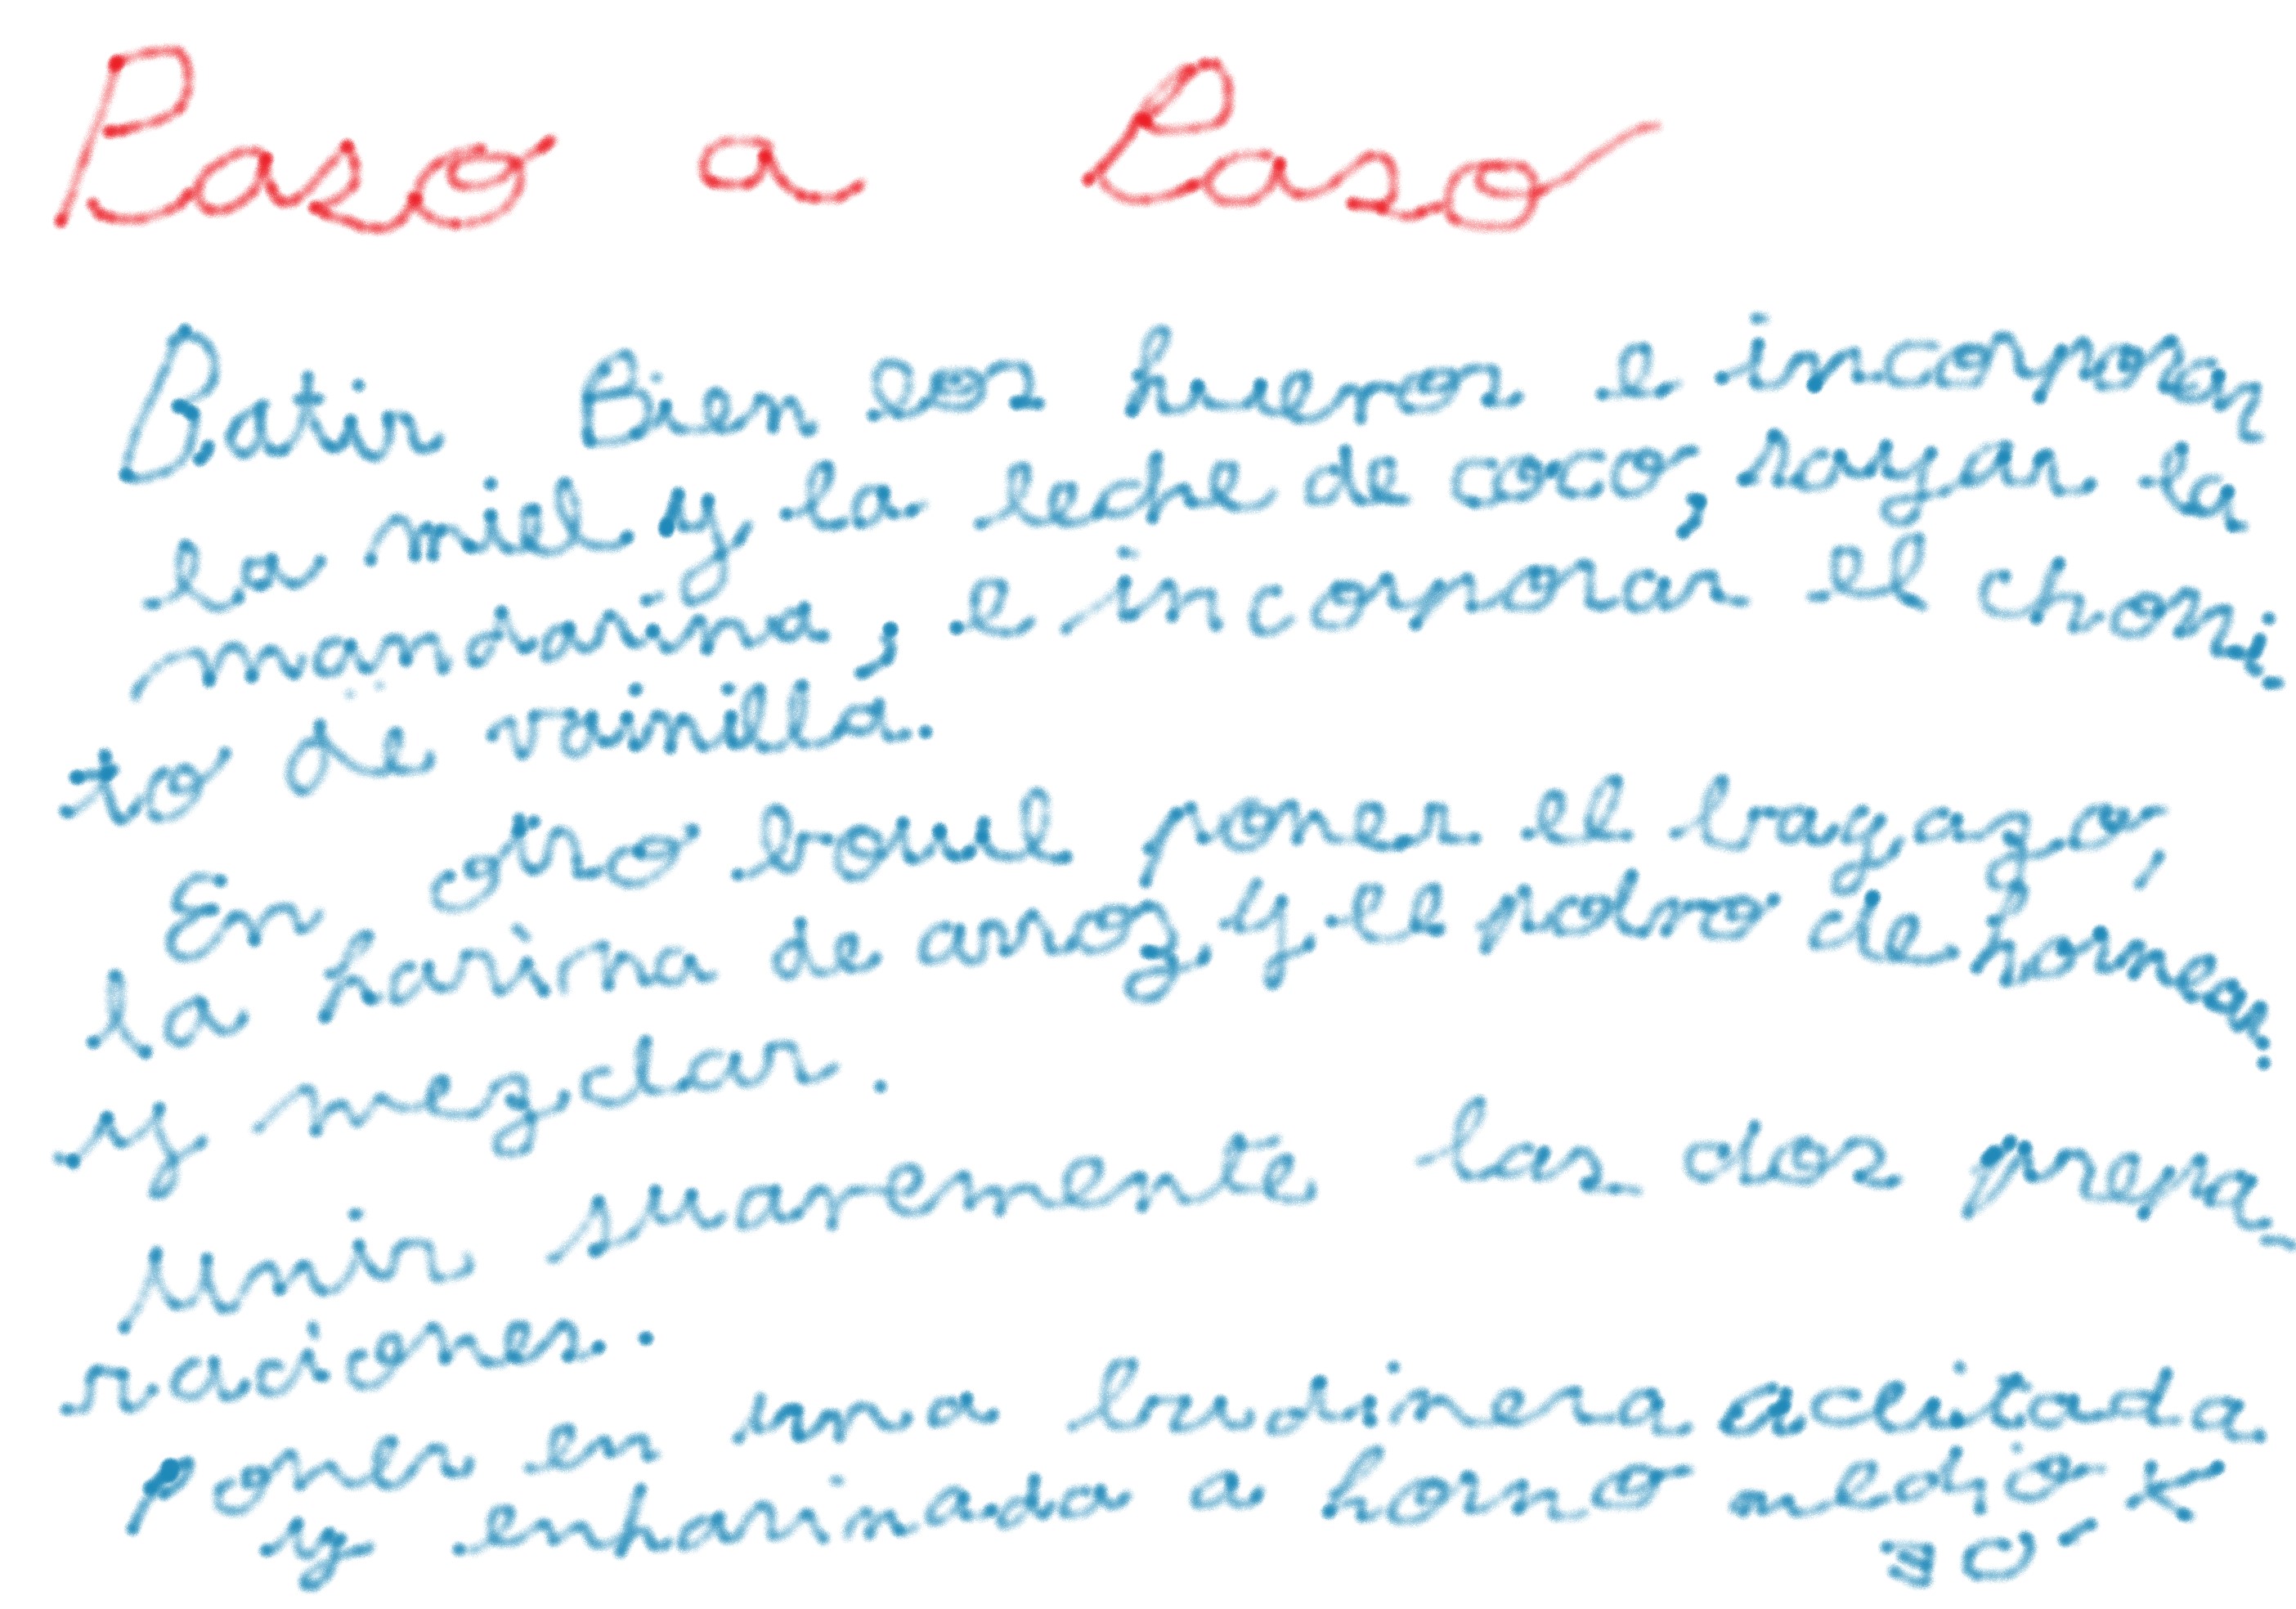 Paso a Paso
Batir Bien los huevos e incorporar
la miel y la leche de coco, rayar la
mandarina, e incorporar el chorri-
to de vainilla.
En otro bowl poner el bagazo,
la harina de arroz y el polvo de hornear.
y mezclar.
Unir suavemente las dos prepa-
raciones.
poner en una budinera aceitada
y enharinada a horno medio x
30'